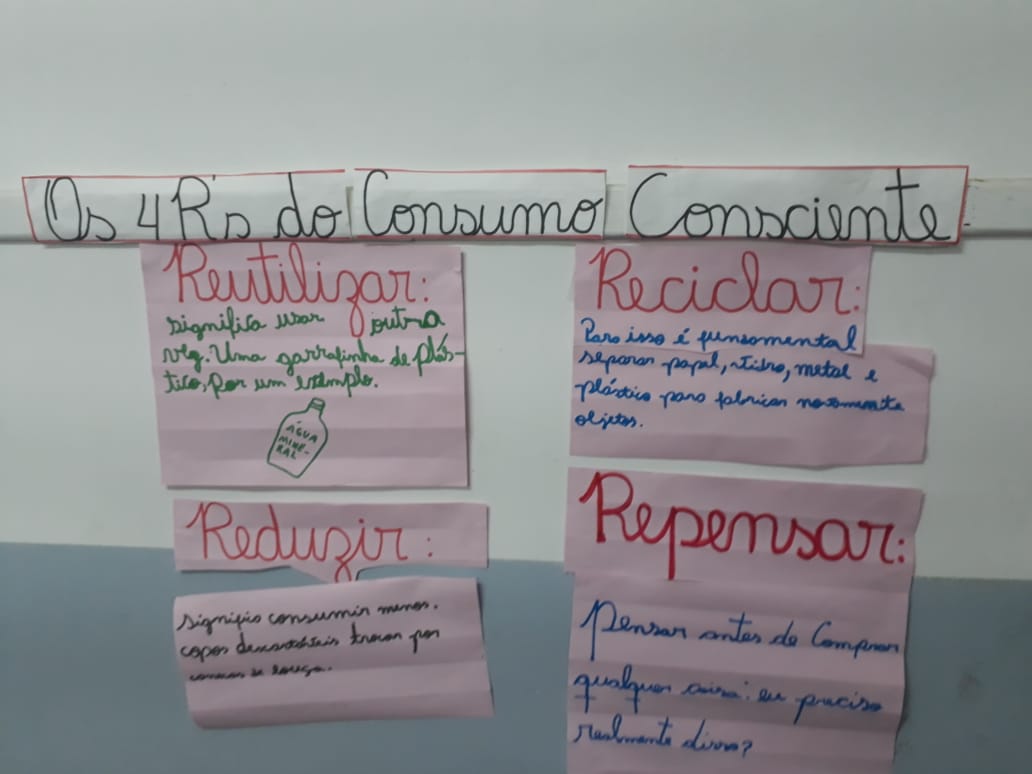 Os 4 R's do Consumo Consciente
Reutilizar:
significa usar outra
vez. Uma garrafinha de plás-
tico, por um exemplo.
ÁGUA
MINE-
RAL
Reciclar:
Para isso é funsamental
separar papel, vidro, metal e
plástico para fabricar novamente
objetos.
Reduzir:
significa consumir menos.
copos descartáveis trocar por
Repensar:
Pensar antes de Comprar
qualquer coisa: eu preciso
realmente disso?